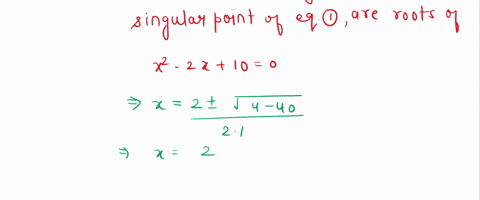 singular point of eq.①, are roots of
x² - 2x + 10 = 0
⇒ x = 2 ± √4-40 / 2·1
⇒ x = 2